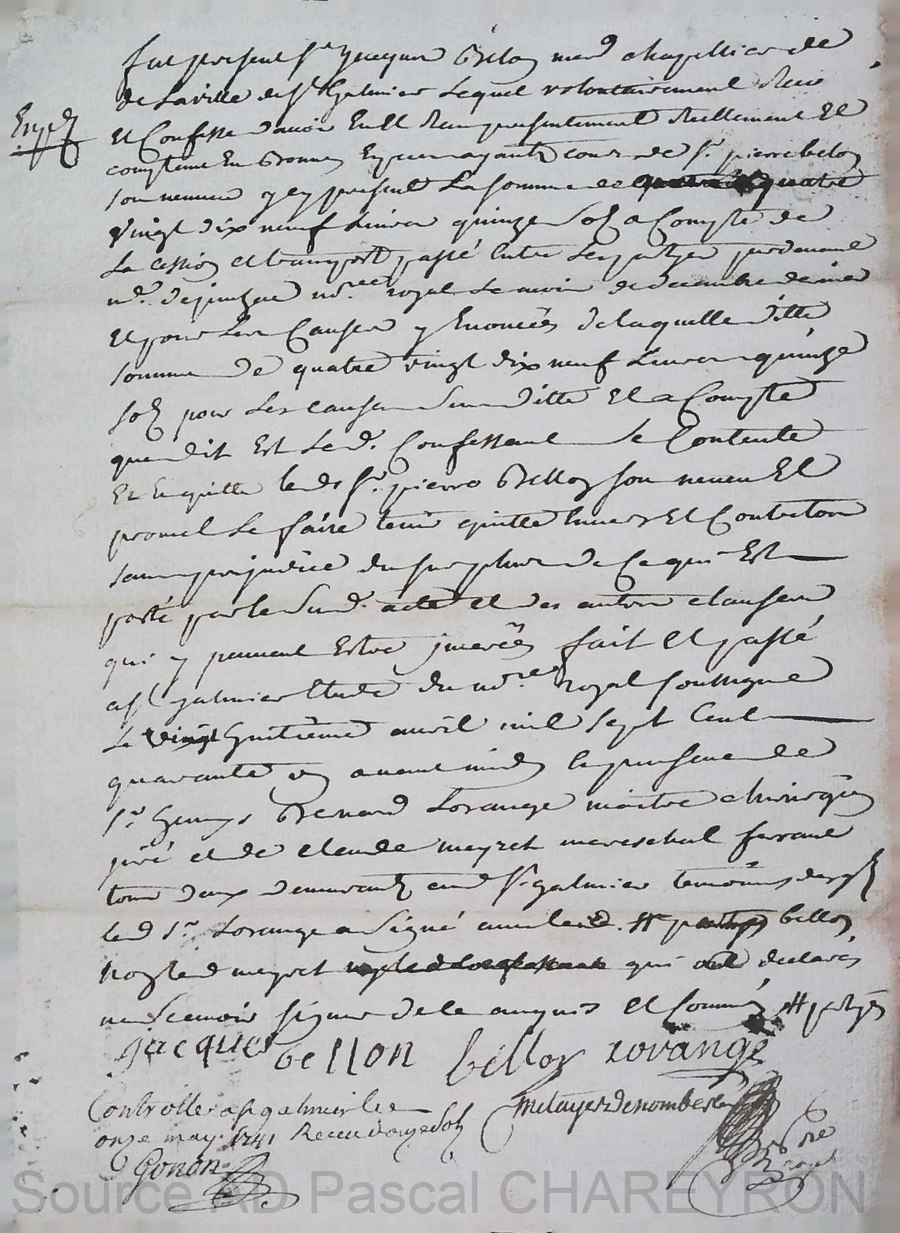 fut present Sr Jacques Bellon md chapellier de
de la ville de St Galmier Lequel volontairement
Exped
Et Confesse d'avoir Eu et Receu presentement Reellement Et
comptant En Bonnes Especes ayants cour de Sr pierre bellon
son neveu y present La somme de quatre
vingt dix neuf Livres quinze sols a Compte de
La cession et transport passé Entre Les parties pardevant
nore royal Le mois de decembre dernier
Et pour Les Causes y Enoncées de laquelle ditte
somme de quatre vingt dix neuf Livres quinze
sols pour Les causes susditte Et a Compte
que dit Est Led. Confessant se Contente
Et En quitte led Sr pierre Bellon son neveu Et
promet Le faire tenir quitte Envers Et Contre tous
sans prejudice du surplus de Ce qui Est
porté par le susd. acte et des autres clauses
qui y peuvent Estre inserées fait Et passé
a St galmier Etude du nore royal soussigné
Le vingt huitième avril mil sept Cent
quarante un avant midy En presence de
Sr Bernard Lorange maitre chirurgien
juré et de claude meyret mareschal ferrant
tous deux demeurants aud St galmier temoins
led Sr Lorange a signé avec led. # bellon
non led meyret qui declaré
ne scavoir signer de ce enquis et sommé # parties
Jacques bellon bellon Lorange
Controllé a St galmier le
onze may 1741 Receu douze sols
Gonon
nore
royal
Source AD Pascal CHAREYRON